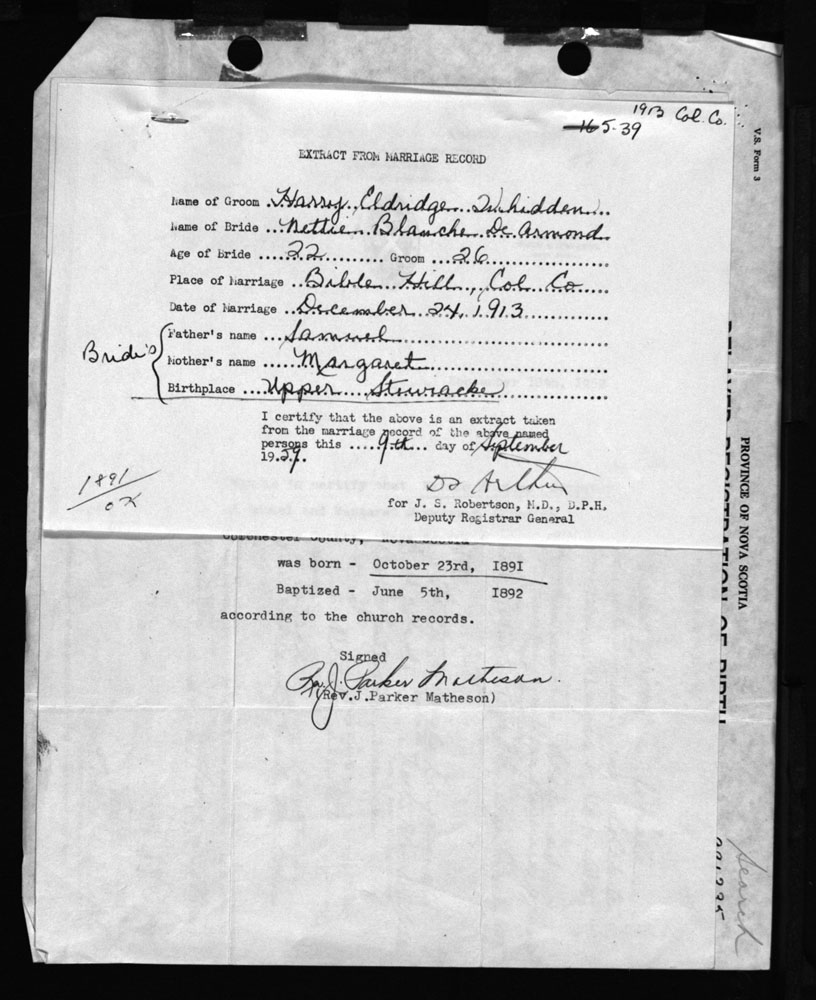 1913 Col. Co.
16 5-39
EXTRACT FROM MARRIAGE RECORD
Name of Groom ..Harry..Eldridge...Whidden...
Name of Bride ...Nettie..Blanche..De Armond.
Age of Bride ....22.......... Groom ...26....................
Place of Marriage ..Bible..Hill..,Col..Co.....
Date of Marriage ..December..24,.1913...............
Bride's
Father's name ...Samuel...............................
Mother's name .....Margaret............................
Birthplace ...Upper...Stewiacke...................
I certify that the above is an extract taken
from the marriage record of the above named
persons this .....9th... day of September
19.
1891
OK
for J. S. Robertson, M.D., D.P.H,
Deputy Registrar General
Colchester County, Nova Scotia
was born - October 23rd, I89I
Baptized - June 5th, I892
according to the church records.
Signed
Rev. J. Parker Matheson.
(Rev.J.Parker Matheson)
V.S. Form 3
PROVINCE OF NOVA SCOTIA
DELAYED REGISTRATION OF BIRTH